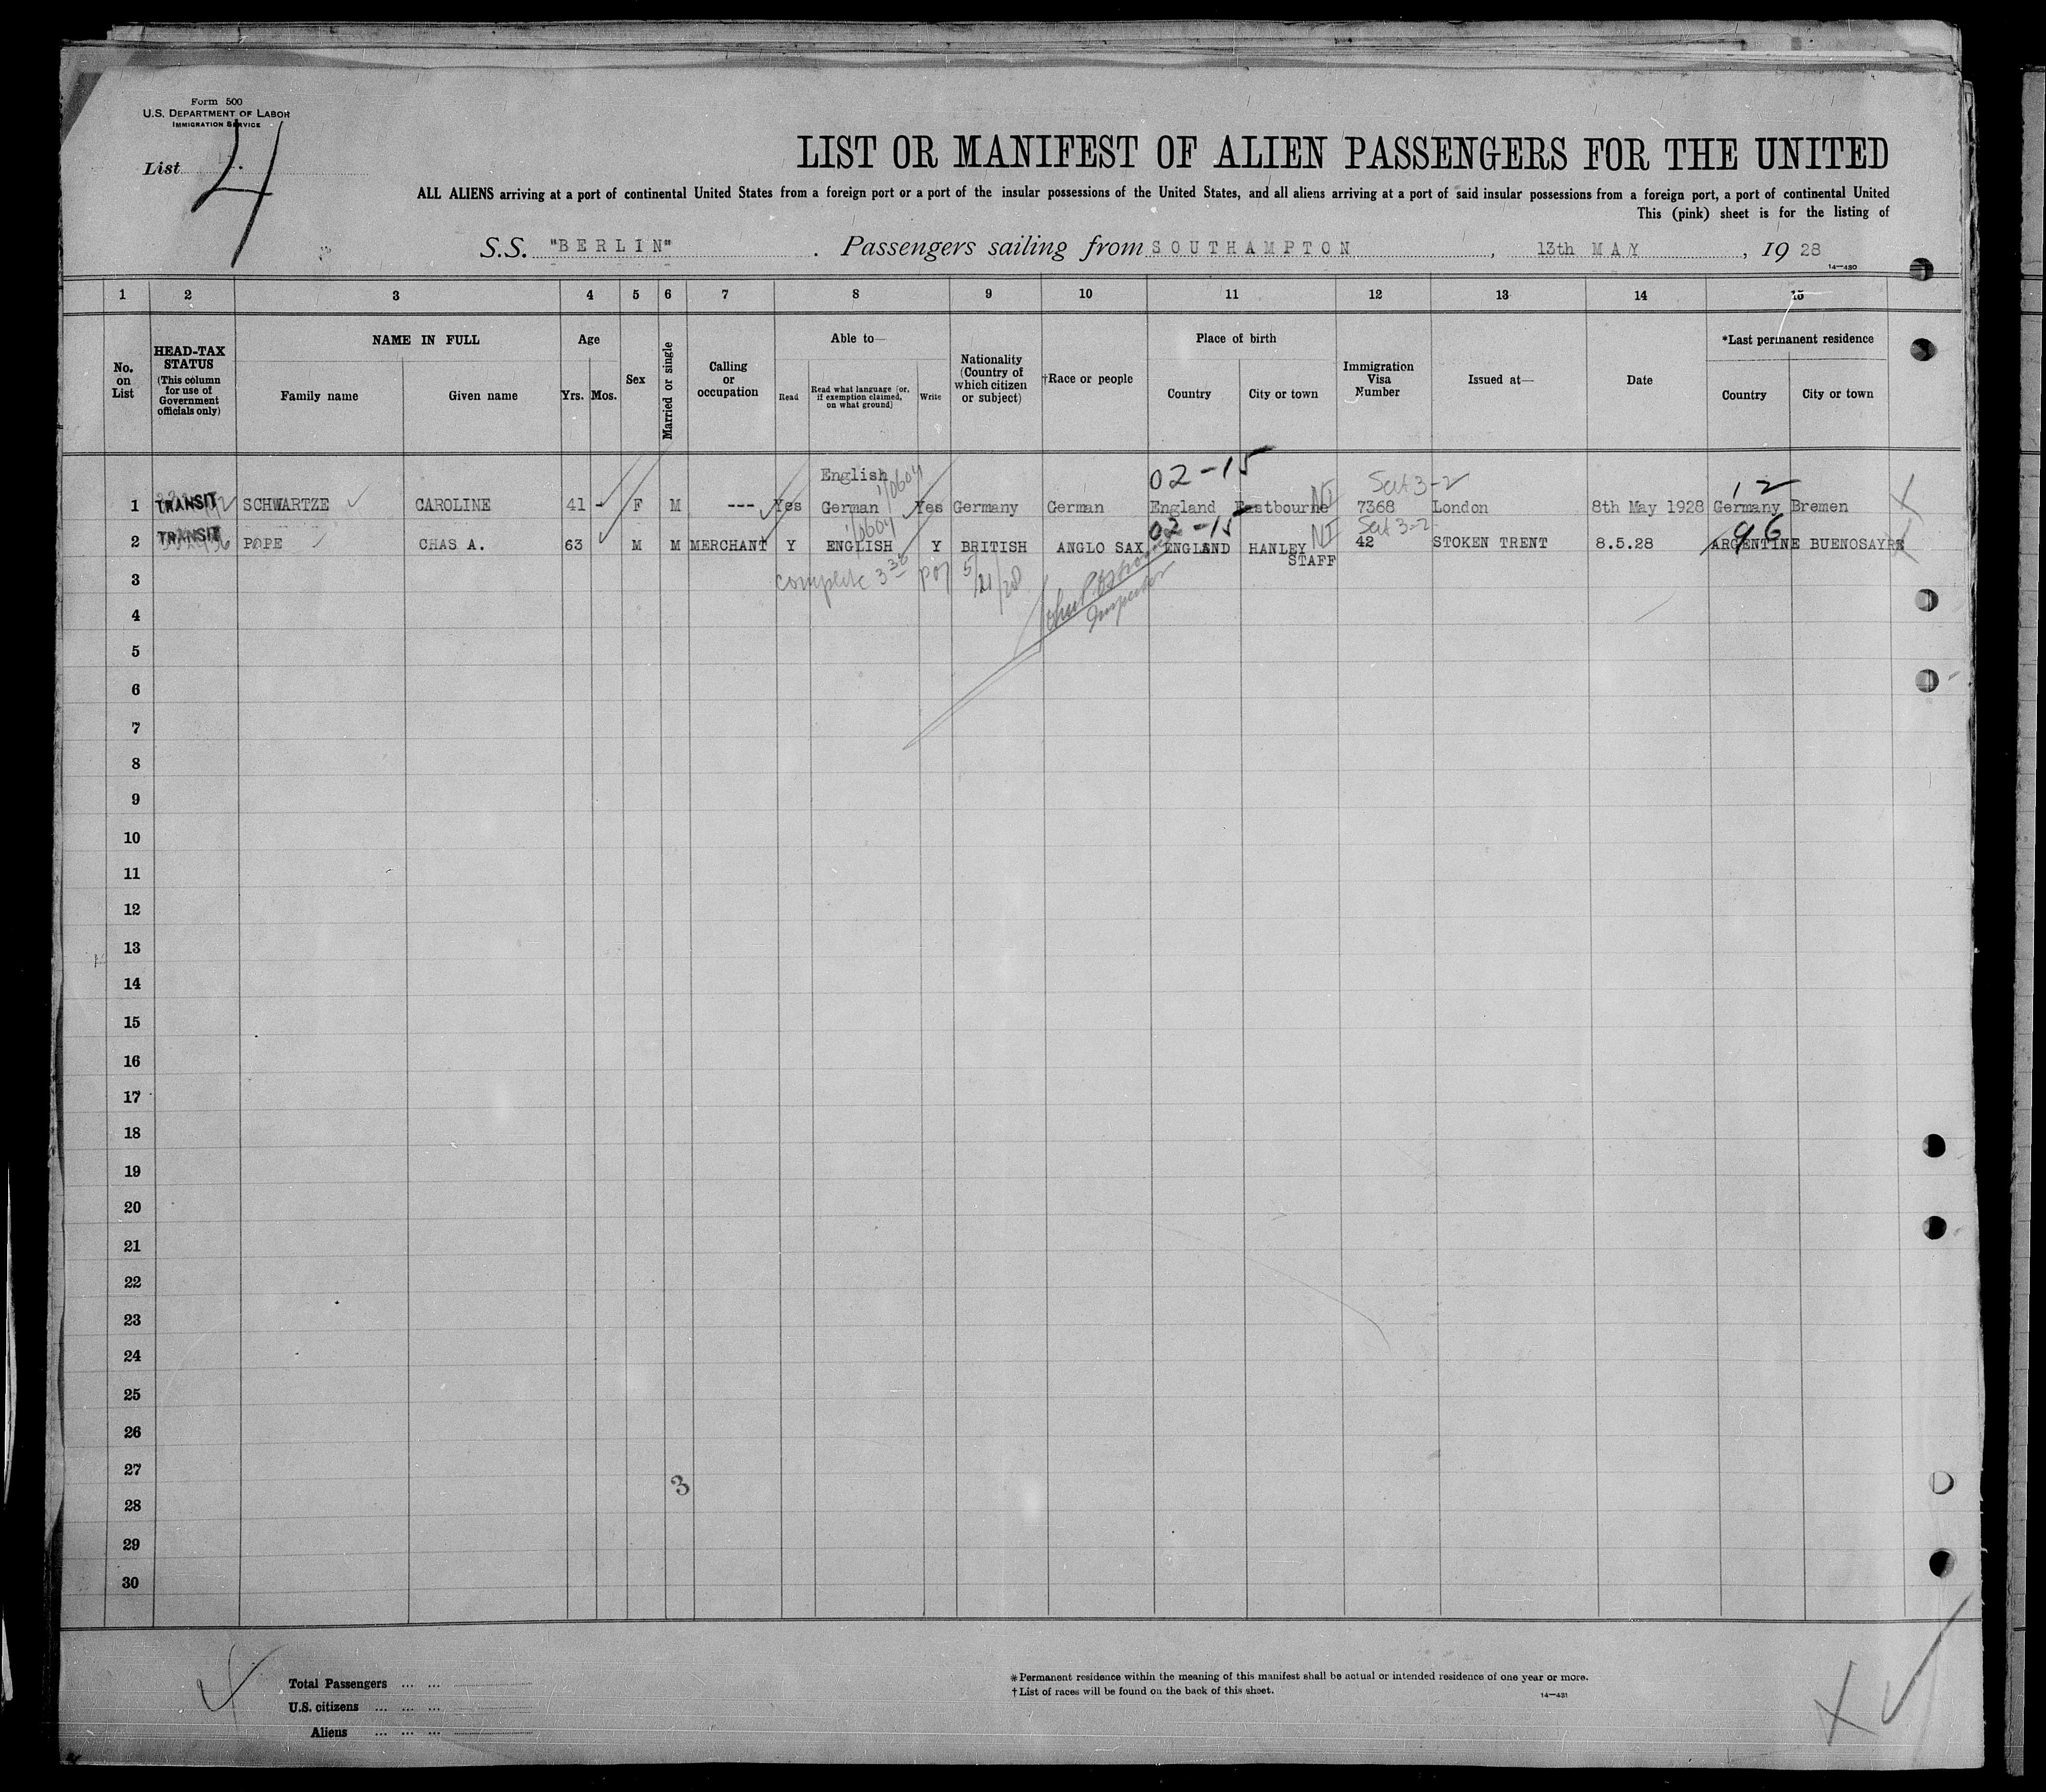 Form 500
U.S. DEPARTMENT OF LABOR
IMMIGRATION SERVICE
List 4
LIST OR MANIFEST OF ALIEN PASSENGERS FOR THE UNITED
ALL ALIENS arriving at a port of continental United States from a foreign port or a port of the insular possessions of the United States, and all aliens arriving at a port of said insular possessions from a foreign port, a port of continental United
This (pink) sheet is for the listing of
S.S. "BERLIN" . Passengers sailing from SOUTHAMPTON , 13th MAY , 19 28
14—430
1 2 3 4 5 6 7 8 9 10 11 12 13 14 15
No. on List
HEAD-TAX STATUS (This column for use of Government officials only)
NAME IN FULL
Family name Given name
Age
Yrs. Mos.
Sex
Married or single
Calling or occupation
Able to—
Read Read what language (or, if exemption claimed, on what ground) Write
Nationality (Country of which citizen or subject)
†Race or people
Place of birth
Country City or town
Immigration Visa Number
Issued at—
Date
*Last permanent residence
Country City or town
English 02-15 Sect 3-2 12
1 TRANSIT SCHWARTZE CAROLINE 41 - F M --- Yes German Yes Germany German England Eastbourne 7368 London 8th May 1928 Germany Bremen
02-15 Sect 3-2 96
2 TRANSIT POPE CHAS A. 63 M M MERCHANT Y ENGLISH Y BRITISH ANGLO SAX ENGLAND HANLEY 42 STOKEN TRENT 8.5.28 ARGENTINE BUENOSAYRE
STAFF
3 complete 5/21/28
Inspector
4
5
6
7
8
9
10
11
12
13
14
15
16
17
18
19
20
21
22
23
24
25
26
27
3
28
29
30
Total Passengers ... ...
U.S. citizens ... ... ...
Aliens ... ... ...
*Permanent residence within the meaning of this manifest shall be actual or intended residence of one year or more.
†List of races will be found on the back of this sheet.
14—431